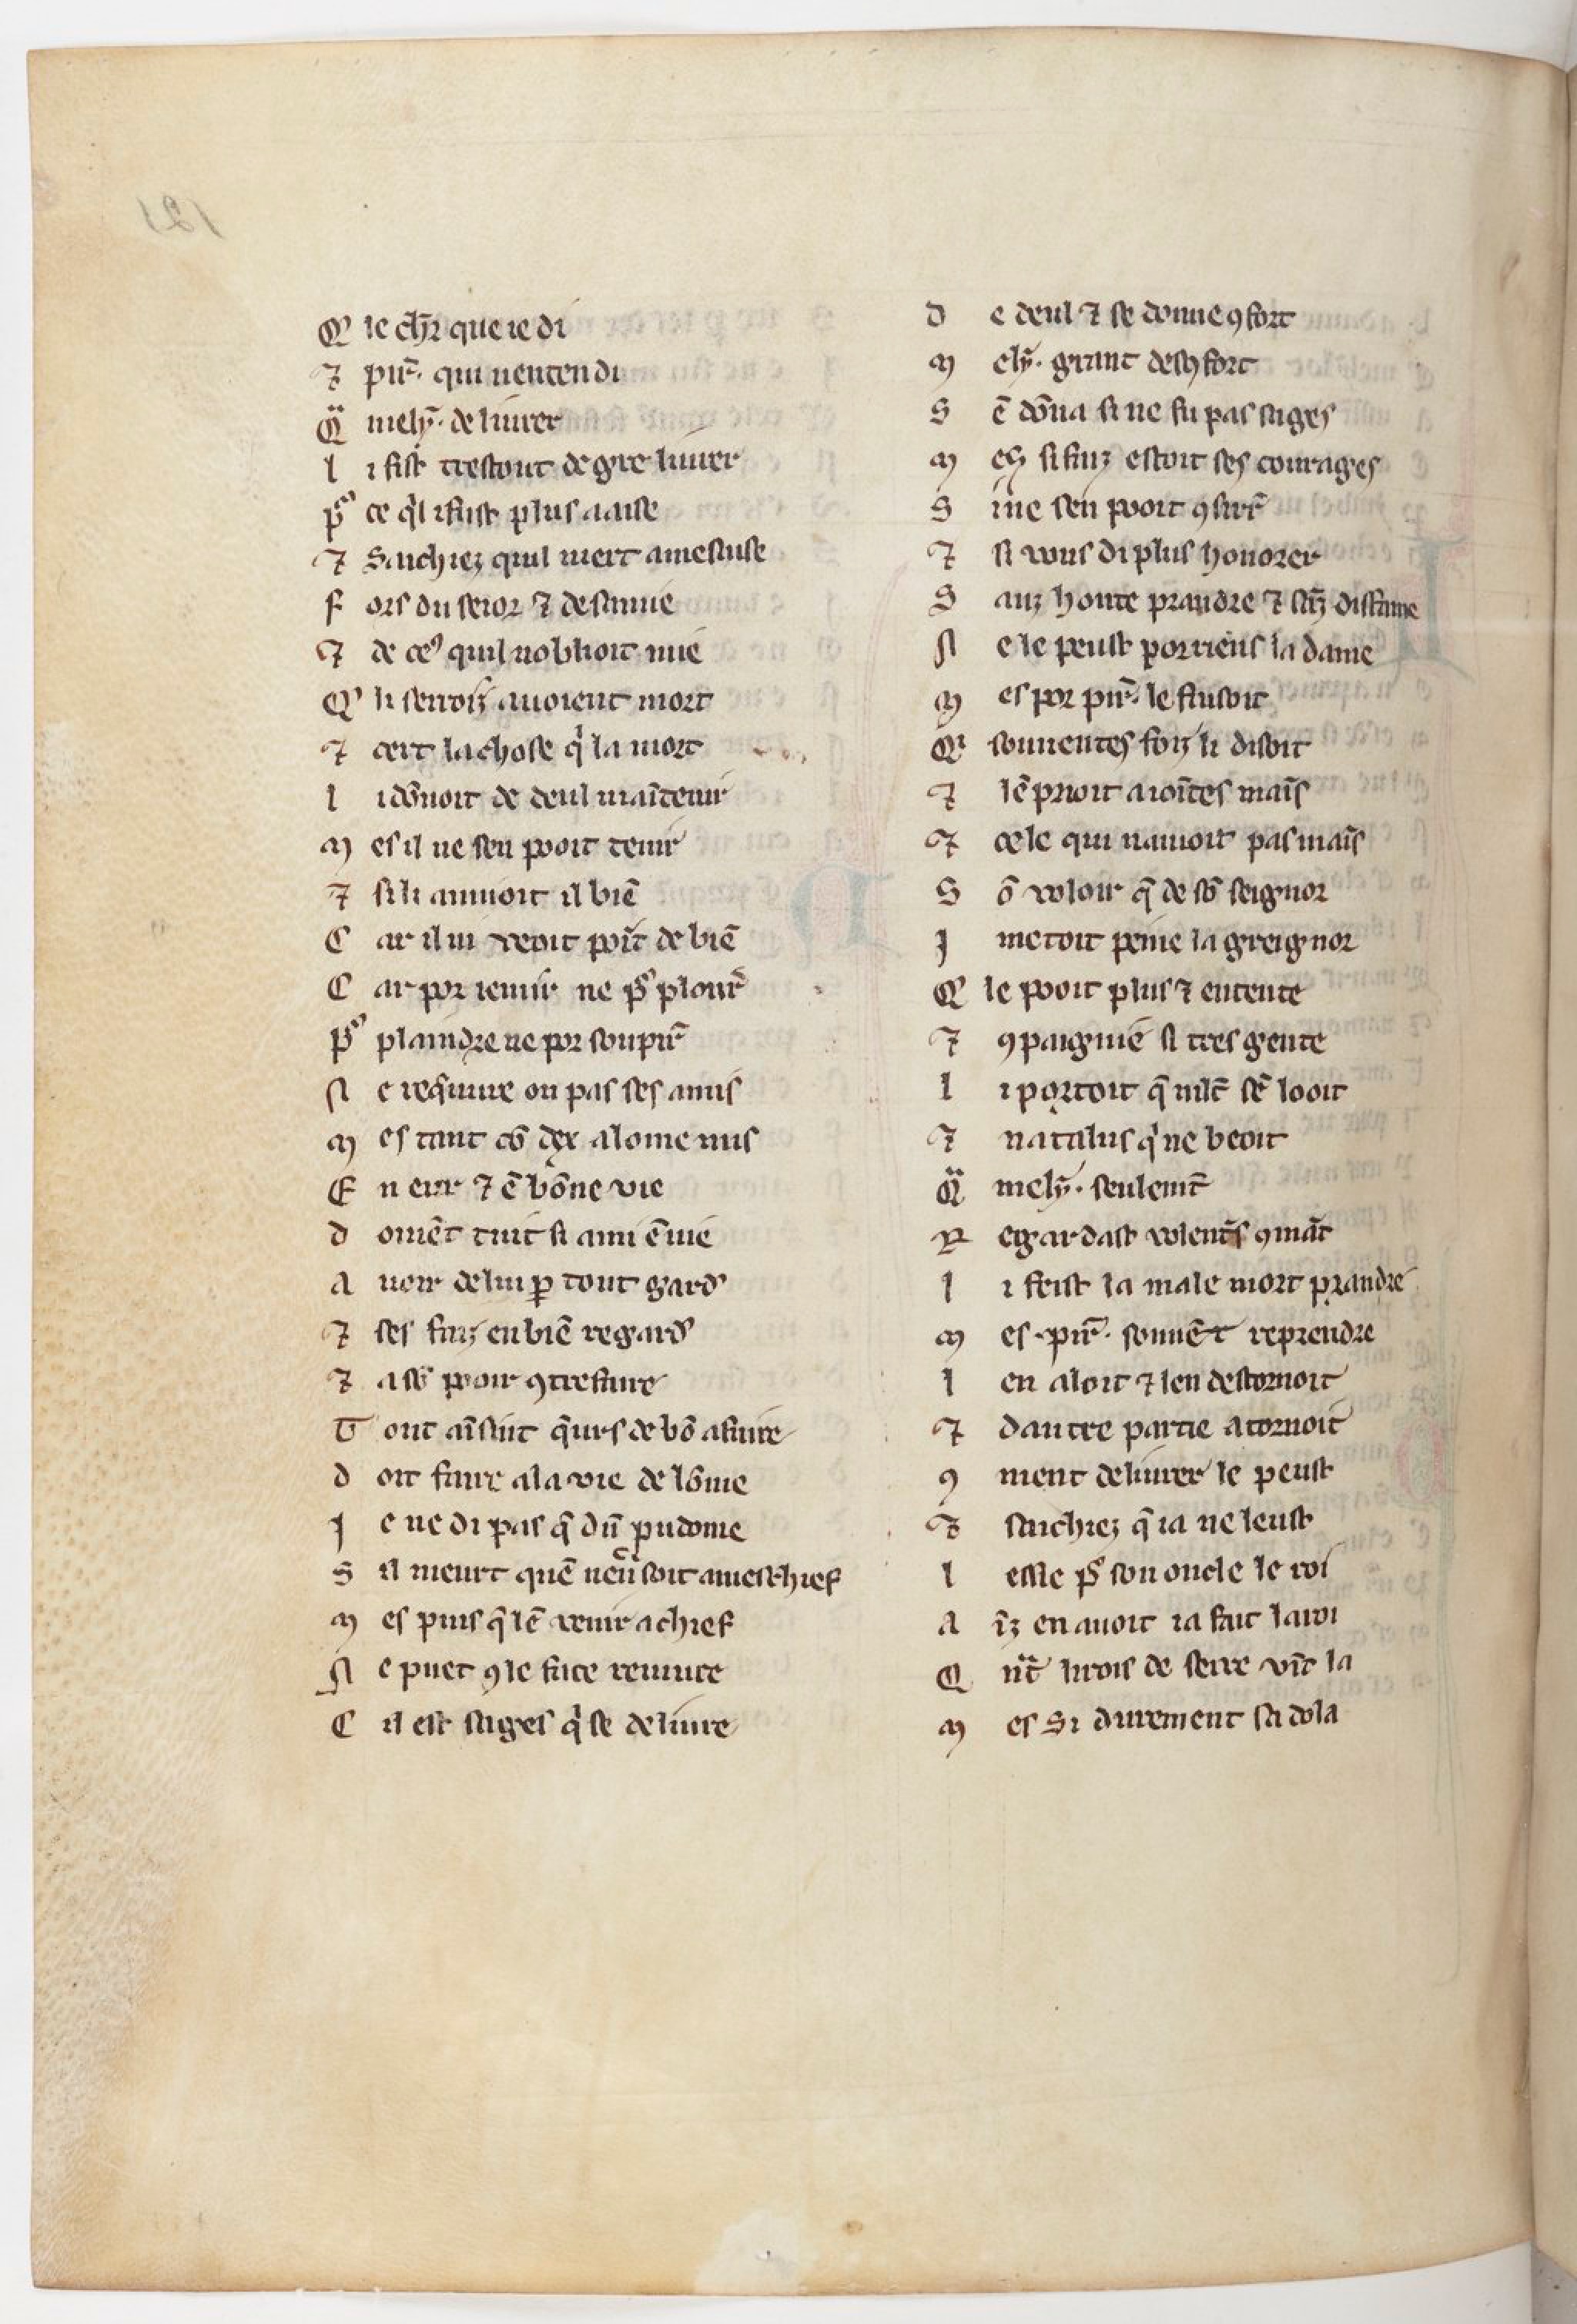 Q' le ch'r que ie di
⁊ pir̄. qui nentendi
Q̈ mely̾. deliurer
l i fist trestout de gre liurer
p᷒ ce q'l i fust plus aaise
⁊ Saichiez quil niert amesaise
F ors du seror ⁊ de samie
⁊ de ce᷒ quil noblioit mie
Q' li serroiz auoient mort
⁊ cert la chose q' la mort
l i dōnoit de deul maītenir
m es il ne sen pooit tenir
⁊ si li anuioit il biē
C ar il ni veoit poīt de biē
C ar por iemir ne p᷒ plour̄
p᷒ plaindre ne por soupir̄
N e requiure on pas ses amis
m es tant cō dex a lome mis
E n eur ⁊ ē bōne vie
d oiuēt tuit si ami ēuie
a uoir de lui ꝑ tout gard᷒
⁊ ses faiz en biē regard᷒
⁊ a sō pooir ꝯtrefaire
T out aīsint q̄urs de bō afaire
d oit faire a la vie de lōme
J e ne di pas q̄ dū pudome
S il meurt quē neū soit a meschief
m es puis q̄ lē venir a chief
N e puet ꝯ le face reuiure
C il est saiges q' se deliure
d e deul ⁊ se donne ꝯfort
m ely̾. grant desꝯfort
S ē dōna si ne fu pas saiges
m es si faiz estoit ses couraiges
S ine sen pooit ꝯsirr̄
⁊ si vous di plus honorer
S anz honte prandre ⁊ sāz diffame
N e le peust por riens la dame
m es por pir̄. le faisoit
Q' souuentes foiz li disoit
⁊ lē prioit a ioītes maīs
⁊ cele qui nauoit pas maīs
S ō voloir q̄ de sō seignor
J metoit peine la greignor
Q' le pooit plus ⁊ entente
⁊ ꝯpaignie si tres gente
l i portoit q̄ mlt̄ sē looit
⁊ natalus q' ne veoit
Q̈ mely̾. seulemt̄
R egardast volent̄s ꝯmāt
l i feist la male mort prandre
m es .pir̄. souuēt reprendre
l en aloit ⁊ len destornoit
⁊ dautre partie atornoit
ꝯ ment deliurer le peust
⁊ saichiez q̄ ia ne leust
l esse p᷒ son oncle le roi
a īz en auoit ia fait laroi
Q nt̄ li rois de serre vīt la
m es Si durement sa dola